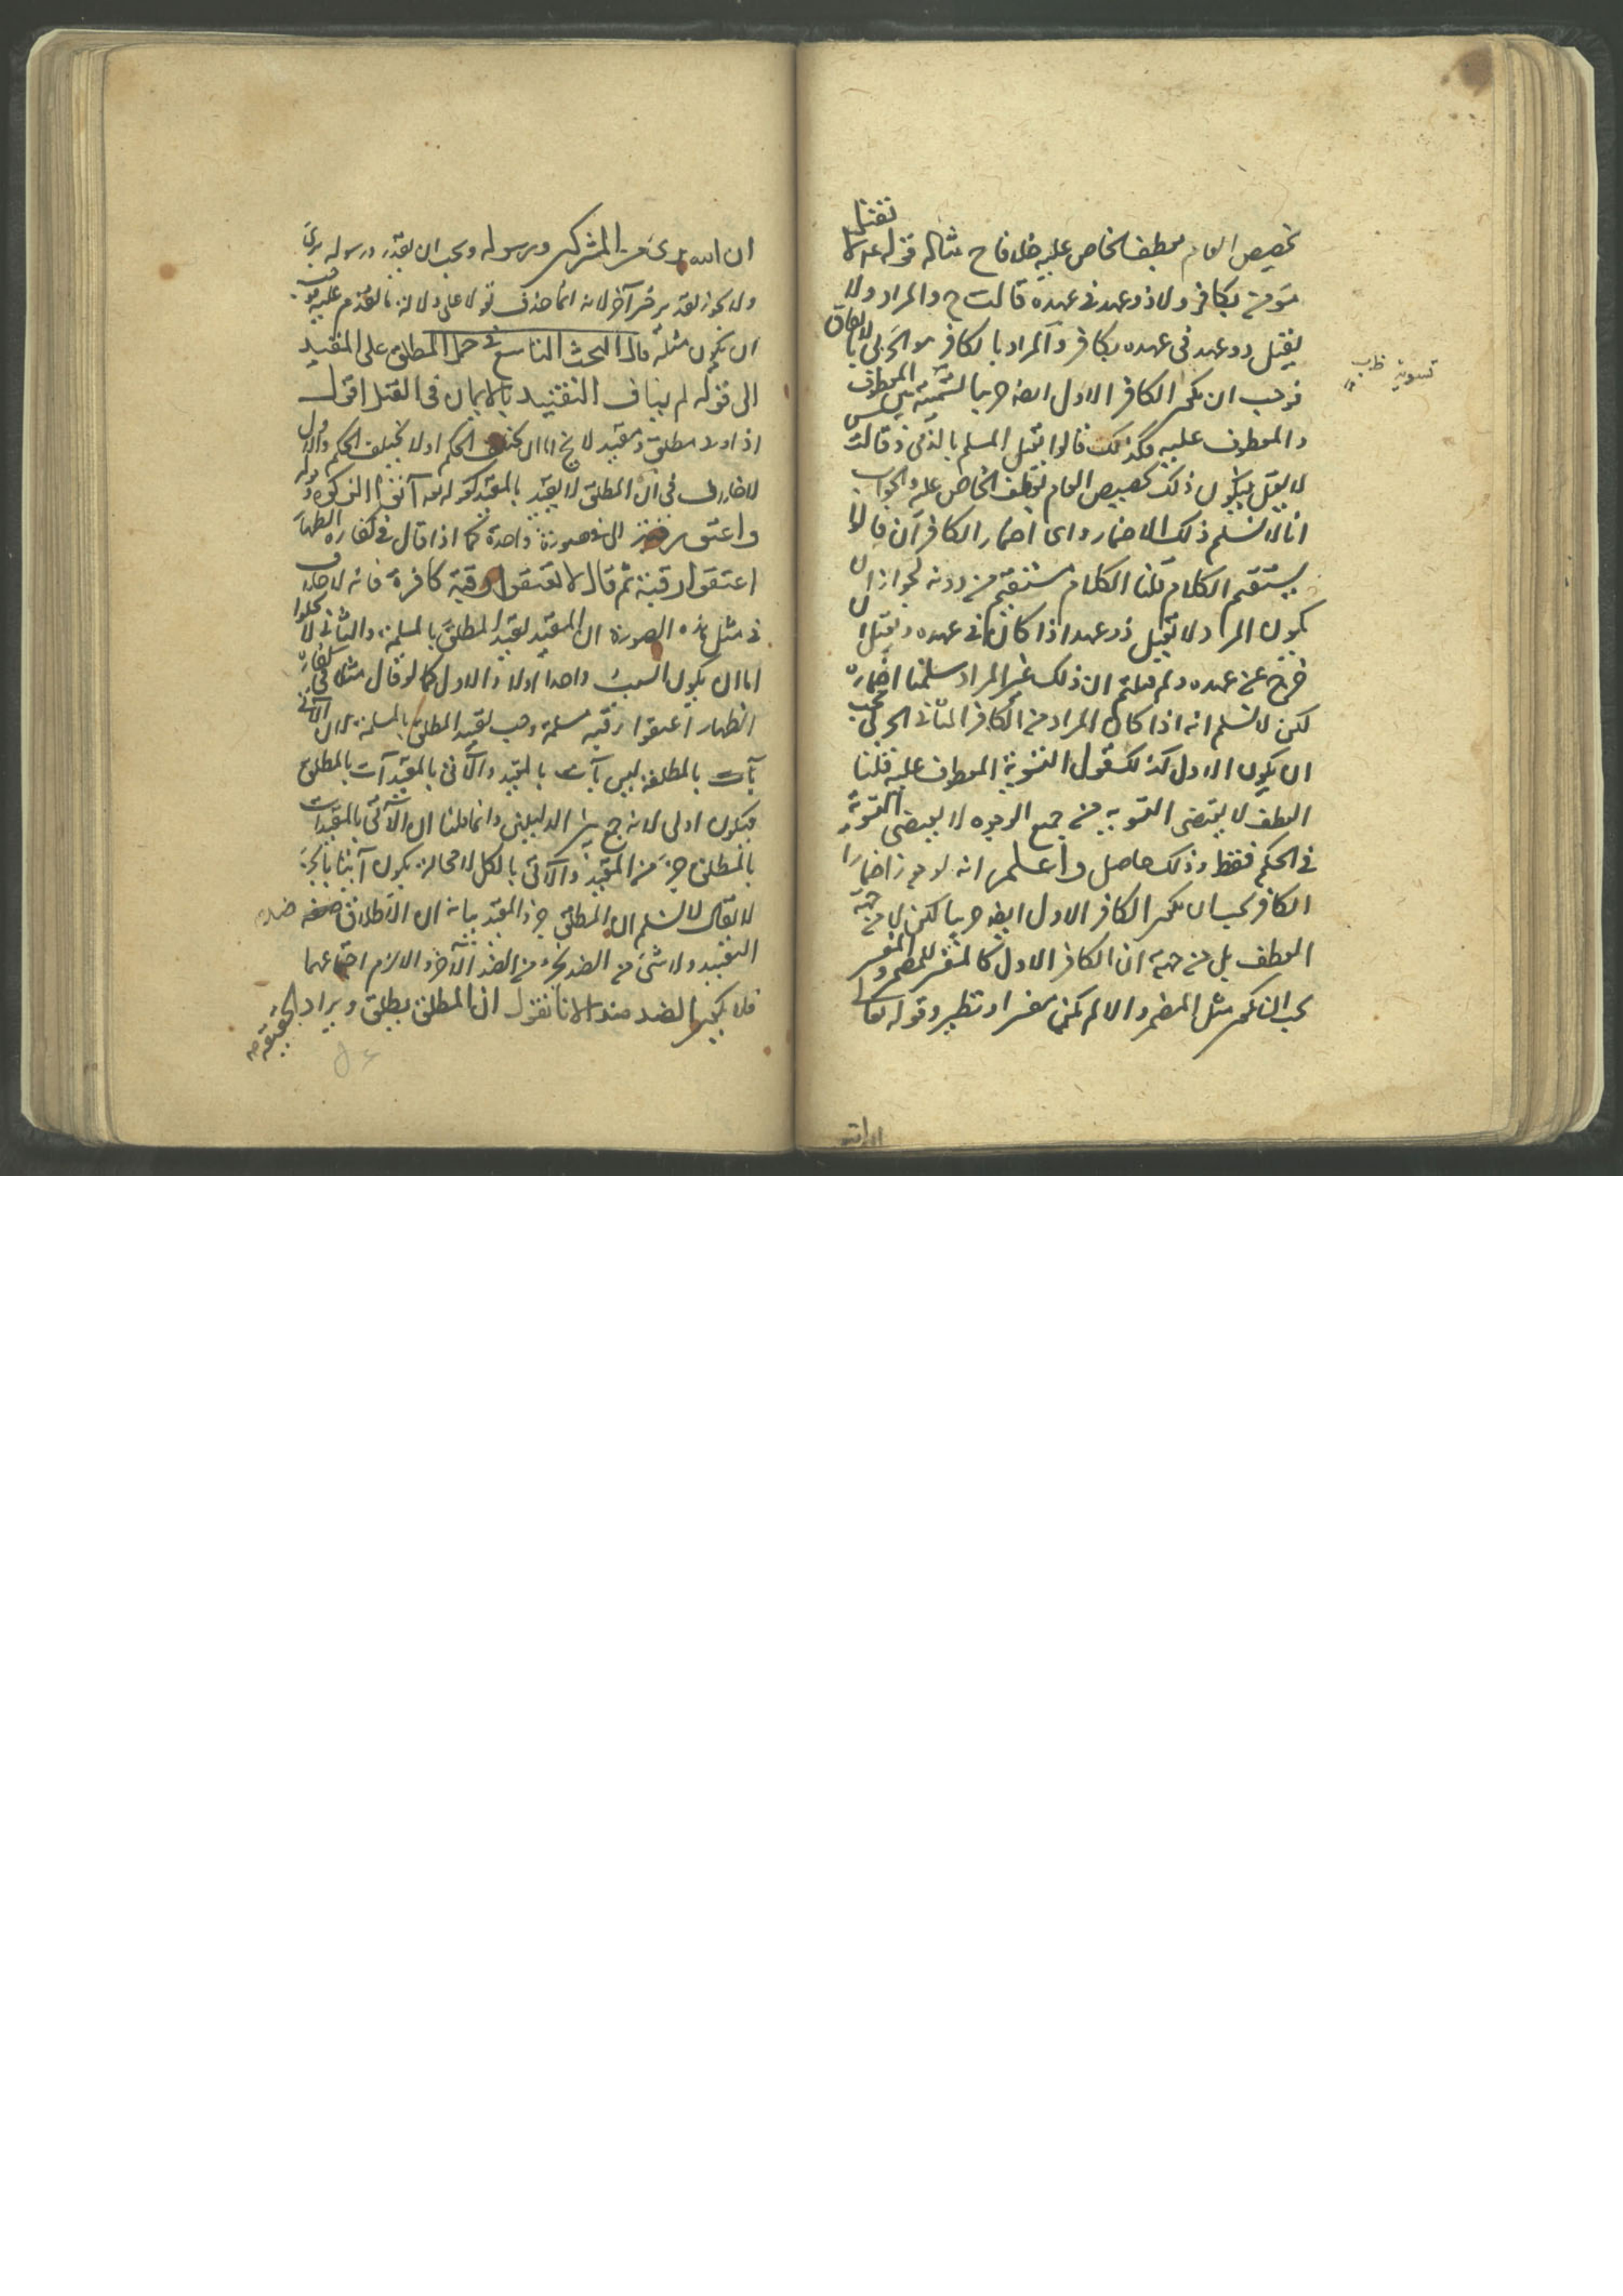 تخصيص العام بعطف الخاص عليه خلافا ح مثاله قوله عم لا تقتل
مؤمن بكافر ولا ذو عهد في عهده قالت ح والمراد ولا
يقتل ذو عهد في عهده بكافر والمراد بالكافر هو الحربي بالاتفاق
فوجب ان يكون الكافر الاول ايضا حربيا لتسوية بين المعطوف
والمعطوف عليه وكذلك قالوا يقتل المسلم بالذمي وقالت
لا يقتل فيكون ذلك تخصيص العام بعطف الخاص عليه والجواب
انا لا نسلم ذلك الاضمار واي اضمار الكافر آن قالوا لا
يستقيم الكلام قلنا الكلام مستقيم من دونه لجواز ان
يكون المراد ولا يقتل ذو عهد اذا كان في عهده ويقتل ان
خرج عن عهده ولم قلتم ان ذلك غير المراد سلمنا اضماره
لكن لا نسلم انه اذا كان المراد من الكافر الثاني الحربي يجب
ان يكون الاول كذلك قوله التسوية المعطوف عليه قلنا
العطف لا يقتضي التسوية من جميع الوجوه لا يقتضي التسوية
في الحكم فقط وذلك حاصل واعلم انه لو جوز اضمار
الكافر يجب ان يكون الكافر الاول ايضا حربيا لكن لا من جهة
العطف بل من جهة ان الكافر الاول كالمفسر للمضمر والمفسر
يجب ان يكون مثل المضمر والا لم يكن مفسرا ونظيره قوله تعالى
تسوية
ان الله برئ من المشركين ورسوله ويجب ان يقدر ورسوله برئ
ولا يجوز تقدير خبر آخر لانه انما حذف تعويلا على دلالة ما تقدم عليه فوجب
ان يكون مثله قال البحث التاسع في حمل المطلق على المقيد
الى قوله لم يناف التقييد بالايمان في القتل اقول
اذا ورد مطلق ومقيد لا يخ اما ان يختلف الحكم او لا يختلف الحكم والاول
لا خلاف في ان المطلق لا يقيد بالمقيد كقوله تعه آتوا الزكوة وقوله
واعتق رقبة الا في صورة واحدة كما اذا قال في كفارة الظهار
اعتقوا رقبة ثم قال لا تعتقوا رقبة كافرة فانه لا خلاف
في مثل هذه الصورة ان المقيد يقيد المطلق بالمسلمة والثاني لا يخلوا
اما ان يكون السبب واحدا او لا والاول كما لو قال مثلا في كفارة
الظهار اعتقوا رقبة مسلمة وجب تقييد المطلق بالمسلمة لان الآتي
بآت بالمطلقة ليس بآت بالمقيد والآتي بالمقيد آت بالمطلق
فيكون اولى لانه جمع بين الدليلين وانما قلنا ان الآتي بالمقيد آت
بالمطلق لان المطلق جزء من المقيد والآتي بالكل لا محالة يكون آتيا بالجزء
لا يقال لا نسلم ان المطلق جزء المقيد بيانه ان الاطلاق ضد
التقييد ولا شئ من الضد بجزء من الضد الآخر والا لزم اجتماعهما
فلا يكون الضد ضدا لانا نقول ان المطلق يطلق ويراد الحقيقة